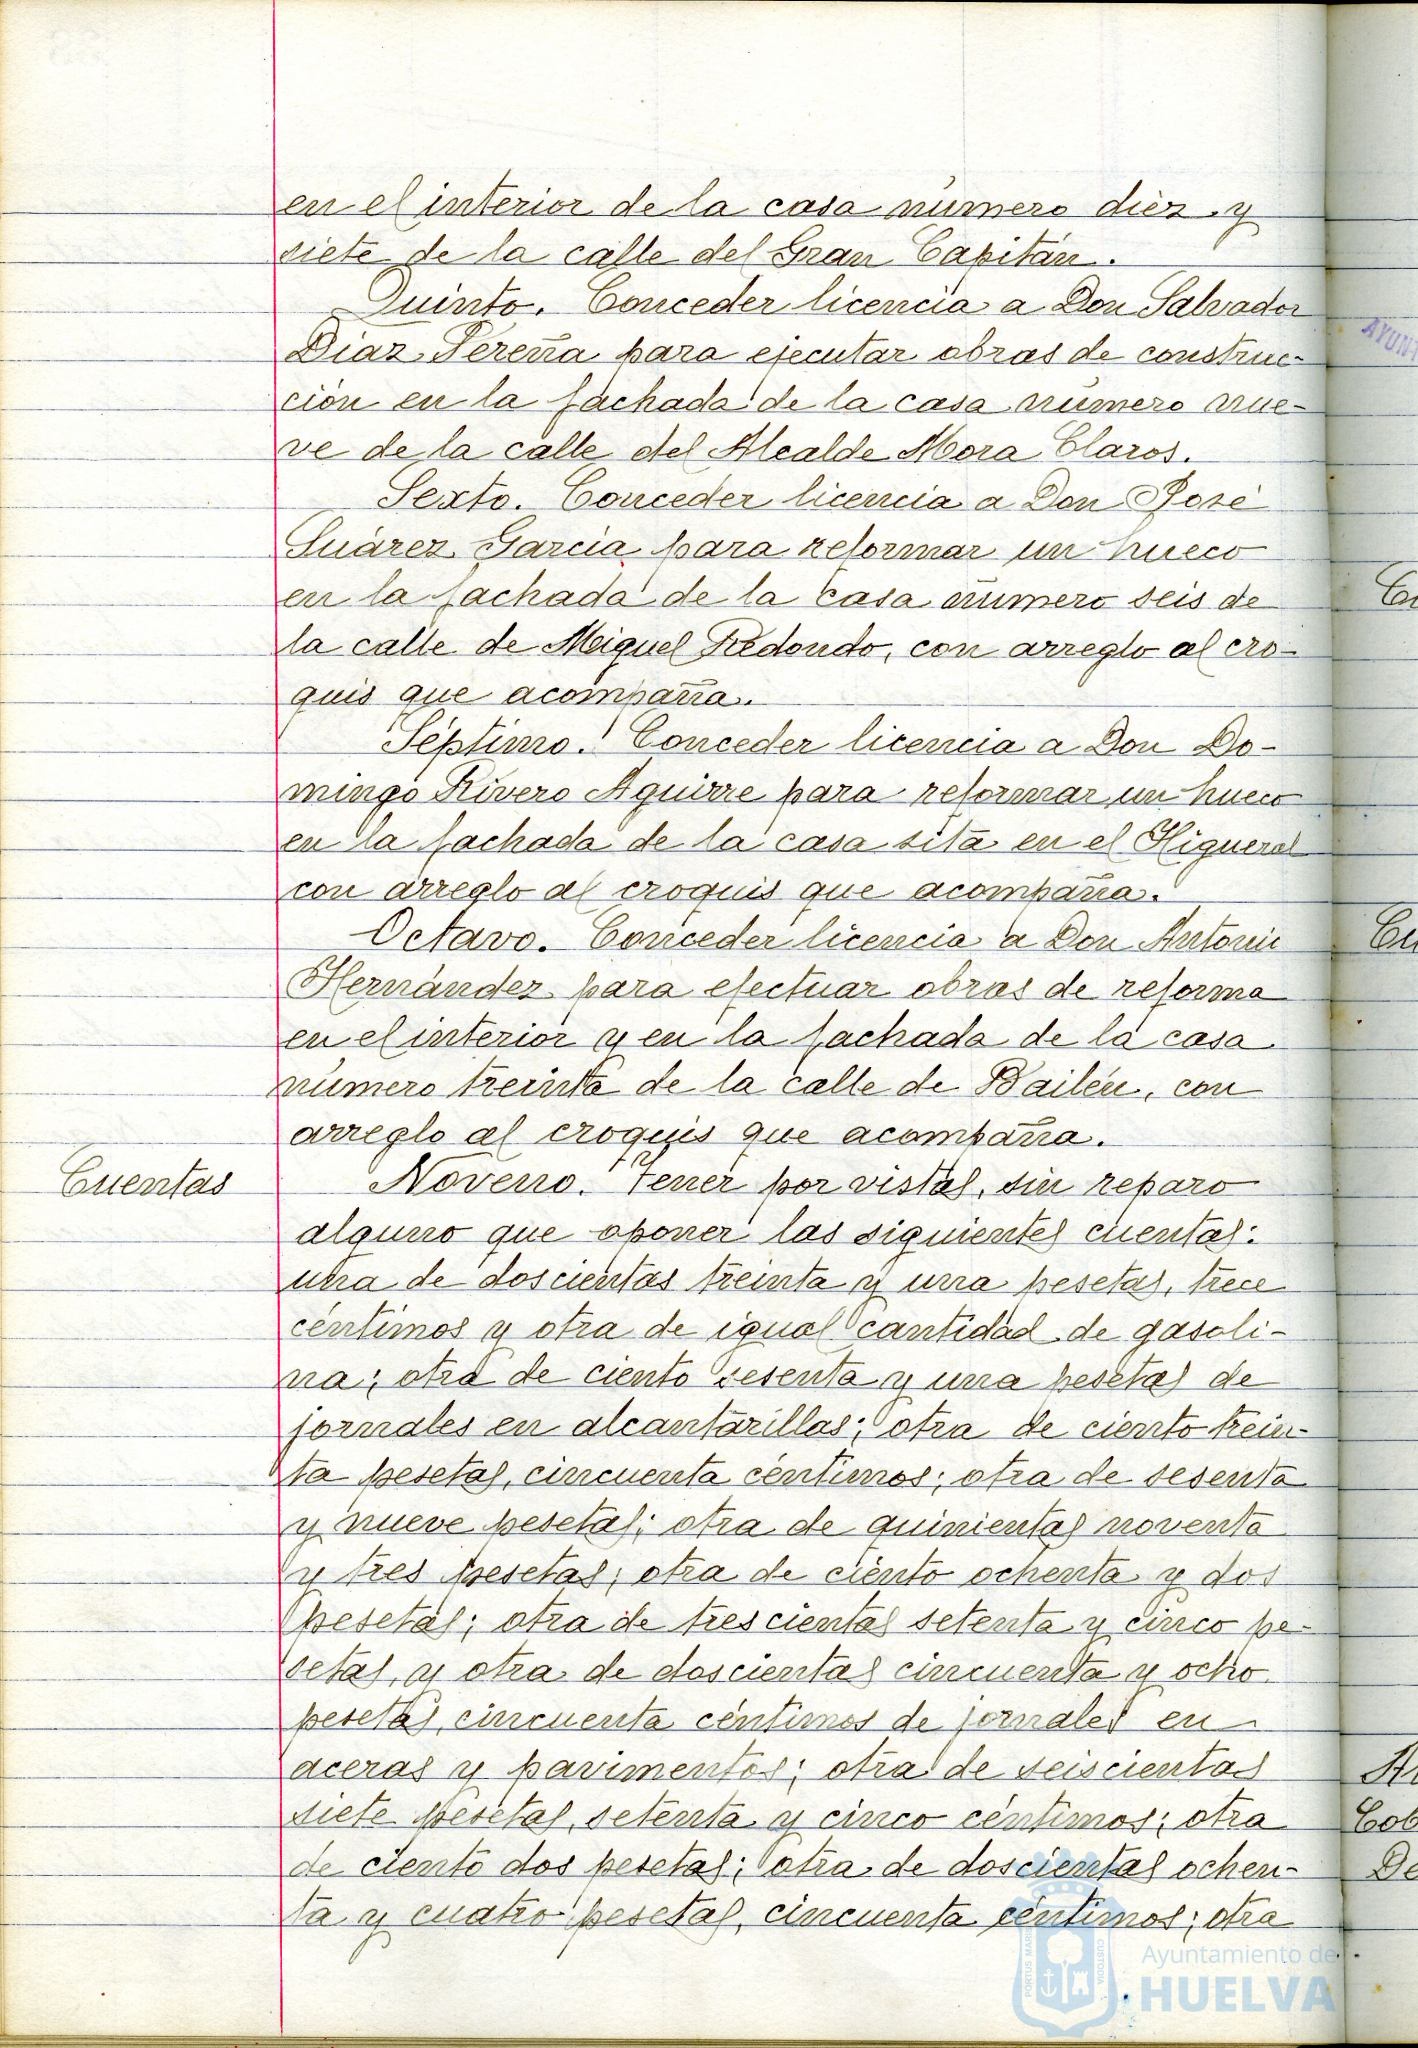 en el interior de la casa número diez y
siete de la calle del Gran Capitán.
Quinto. Conceder licencia a Don Salvador
Díaz Pereña para ejecutar obras de construc-
ción en la fachada de la casa número nue-
ve de la calle del Alcalde Mora Claros.
Sexto. Conceder licencia a Don José
Suárez García para reformar un hueco
en la fachada de la casa número seis de
la calle de Miguel Redondo, con arreglo al cro-
quis que acompaña.
Séptimo. Conceder licencia a Don Do-
mingo Rivero Aguirre para reformar un hueco
en la fachada de la casa sita en el Higueral
con arreglo al croquis que acompaña.
Octavo. Conceder licencia a Don Antonio
Hernández para efectuar obras de reforma
en el interior y en la fachada de la casa
número treinta de la calle de Bailén, con
arreglo al croquis que acompaña.
Cuentas
Noveno. Tener por vistas, sin reparo
alguno que oponer las siguientes cuentas:
una de doscientas treinta y una pesetas, trece
céntimos y otra de igual cantidad de gasoli-
na; otra de ciento sesenta y una pesetas de
jornales en alcantarillas; otra de ciento trein-
ta pesetas, cincuenta céntimos; otra de sesenta
y nueve pesetas; otra de quinientas noventa
y tres pesetas; otra de ciento ochenta y dos
pesetas; otra de trescientas setenta y cinco pe-
setas, y otra de doscientas cincuenta y ocho
pesetas, cincuenta céntimos de jornales en
aceras y pavimentos; otra de seiscientas
siete pesetas, setenta y cinco céntimos; otra
de ciento dos pesetas; otra de doscientas ochen-
ta y cuatro pesetas, cincuenta céntimos; otra
Ayuntamiento de
HUELVA